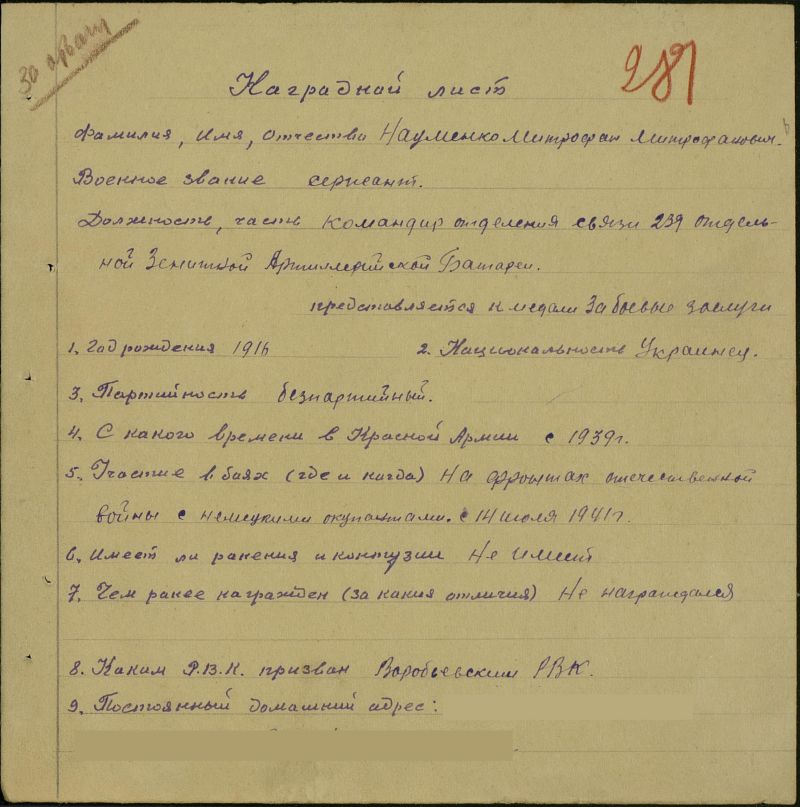 30 орваш
281
Наградной лист
Фамилия, имя, отчество Науменко Митрофан Митрофанович.
Военное звание сержант.
Должность, часть Командир отделения связи 239 отдель-
ной Зенитной Артиллерийской Батареи.
представляется к медали За боевые заслуги
1. Год рождения 1916
2. Национальность Украинец.
3. Партийность безпартийный.
4. С какого времени в Красной Армии с 1939г.
5. Участие в боях (где и когда) На фронтах отечественной
войны с немецкими окупантами. с 14 июля 1941г.
6. Имеет ли ранения и контузии Не имеет
7. Чем ранее награжден (за какия отличия) Не награждался
8. Каким Р.В.К. призван Воробьевским РВК.
9. Постоянный домашний адрес: